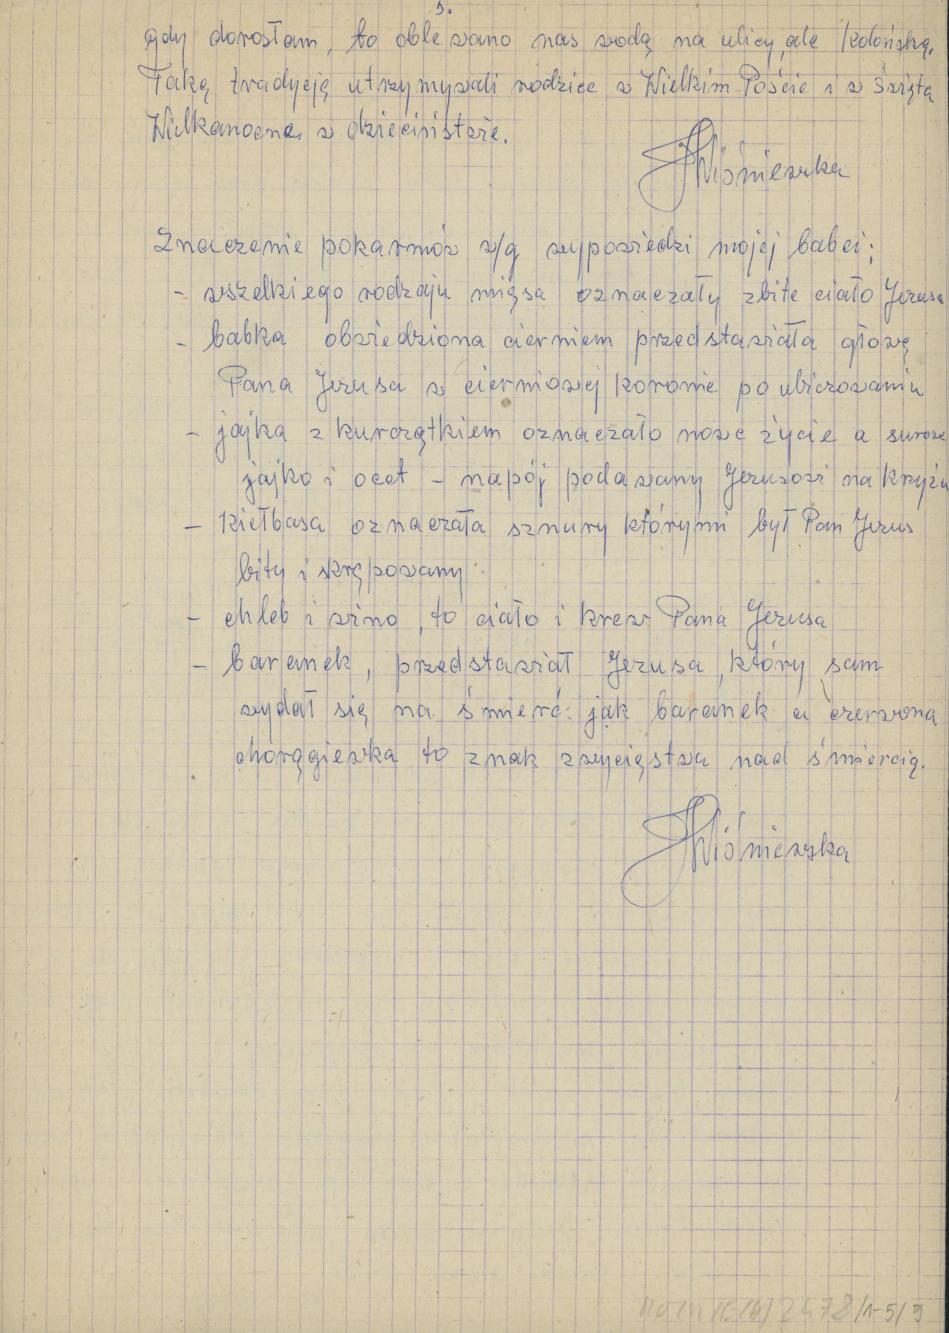 5.
gdy dorosłam, to oblewano nas wodą na ulicy, ale kolońską.
Taką tradycję utrzymywali rodzice w Wielkim Poście i w Święta
Wielkanocne w dzieciństwie.
Wiśniewska
Znaczenie pokarmów w/g wypowiedzi mojej babci:
- wszelkiego rodzaju mięsa oznaczały zbite ciało Jezusa
- babka obwiedziona cierniem przedstawiała głowę
Pana Jezusa w cierniowej koronie po ubiczowaniu
- jajka z kurczątkiem oznaczało nowe życie a surowe
jajko i ocet - napój podawany Jezusowi na krzyżu
- kiełbasa oznaczała sznury którymi był Pan Jezus
bity i skrępowany
- chleb i wino, to ciało i krew Pana Jezusa
- baranek, przedstawiał Jezusa, który sam
wydał się na śmierć jak baranek a czerwona
chorągiewka to znak zwycięstwa nad śmiercią.
Wiśniewska
2478/1-5/5